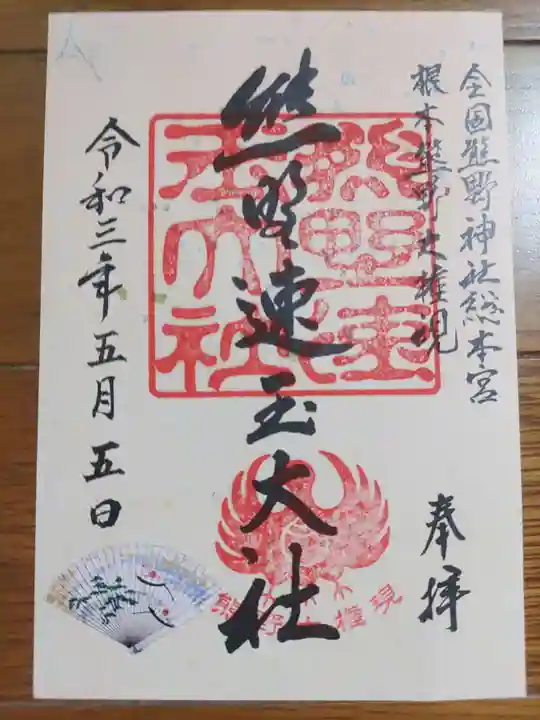 全国熊野神社総本宮
根本熊野大権現
奉拝
熊野速玉大社
熊野速玉大社
令和三年五月五日
熊野大権現